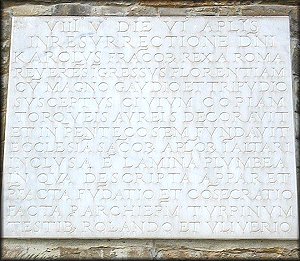 VIII V DIE VI APLIS
IN RESVRRECTIONE DNI
KAROLVS FRACOR REX A ROMA
REVERES GRESSVS FLORENTIAM
CV MAGNO GAVDIO ET TRIPVDIO
SVSCEPTVS CIVIVM COPIAM
TORQVEIS AVREIS DECORAVIT
ET IN PENTECOSTEM FVNDAVIT
ECCLESIA SACOR APLOR I ALTARI
INCLVSA E LAMINA PLVMBEA
IN QVA DESCRIPTA APPARET
FACTA FVDATIO ET COSECRATIO
FACTA P ARCHIEPM TVRPINVM
TESTIB ROLANDO ET VLIVERIO